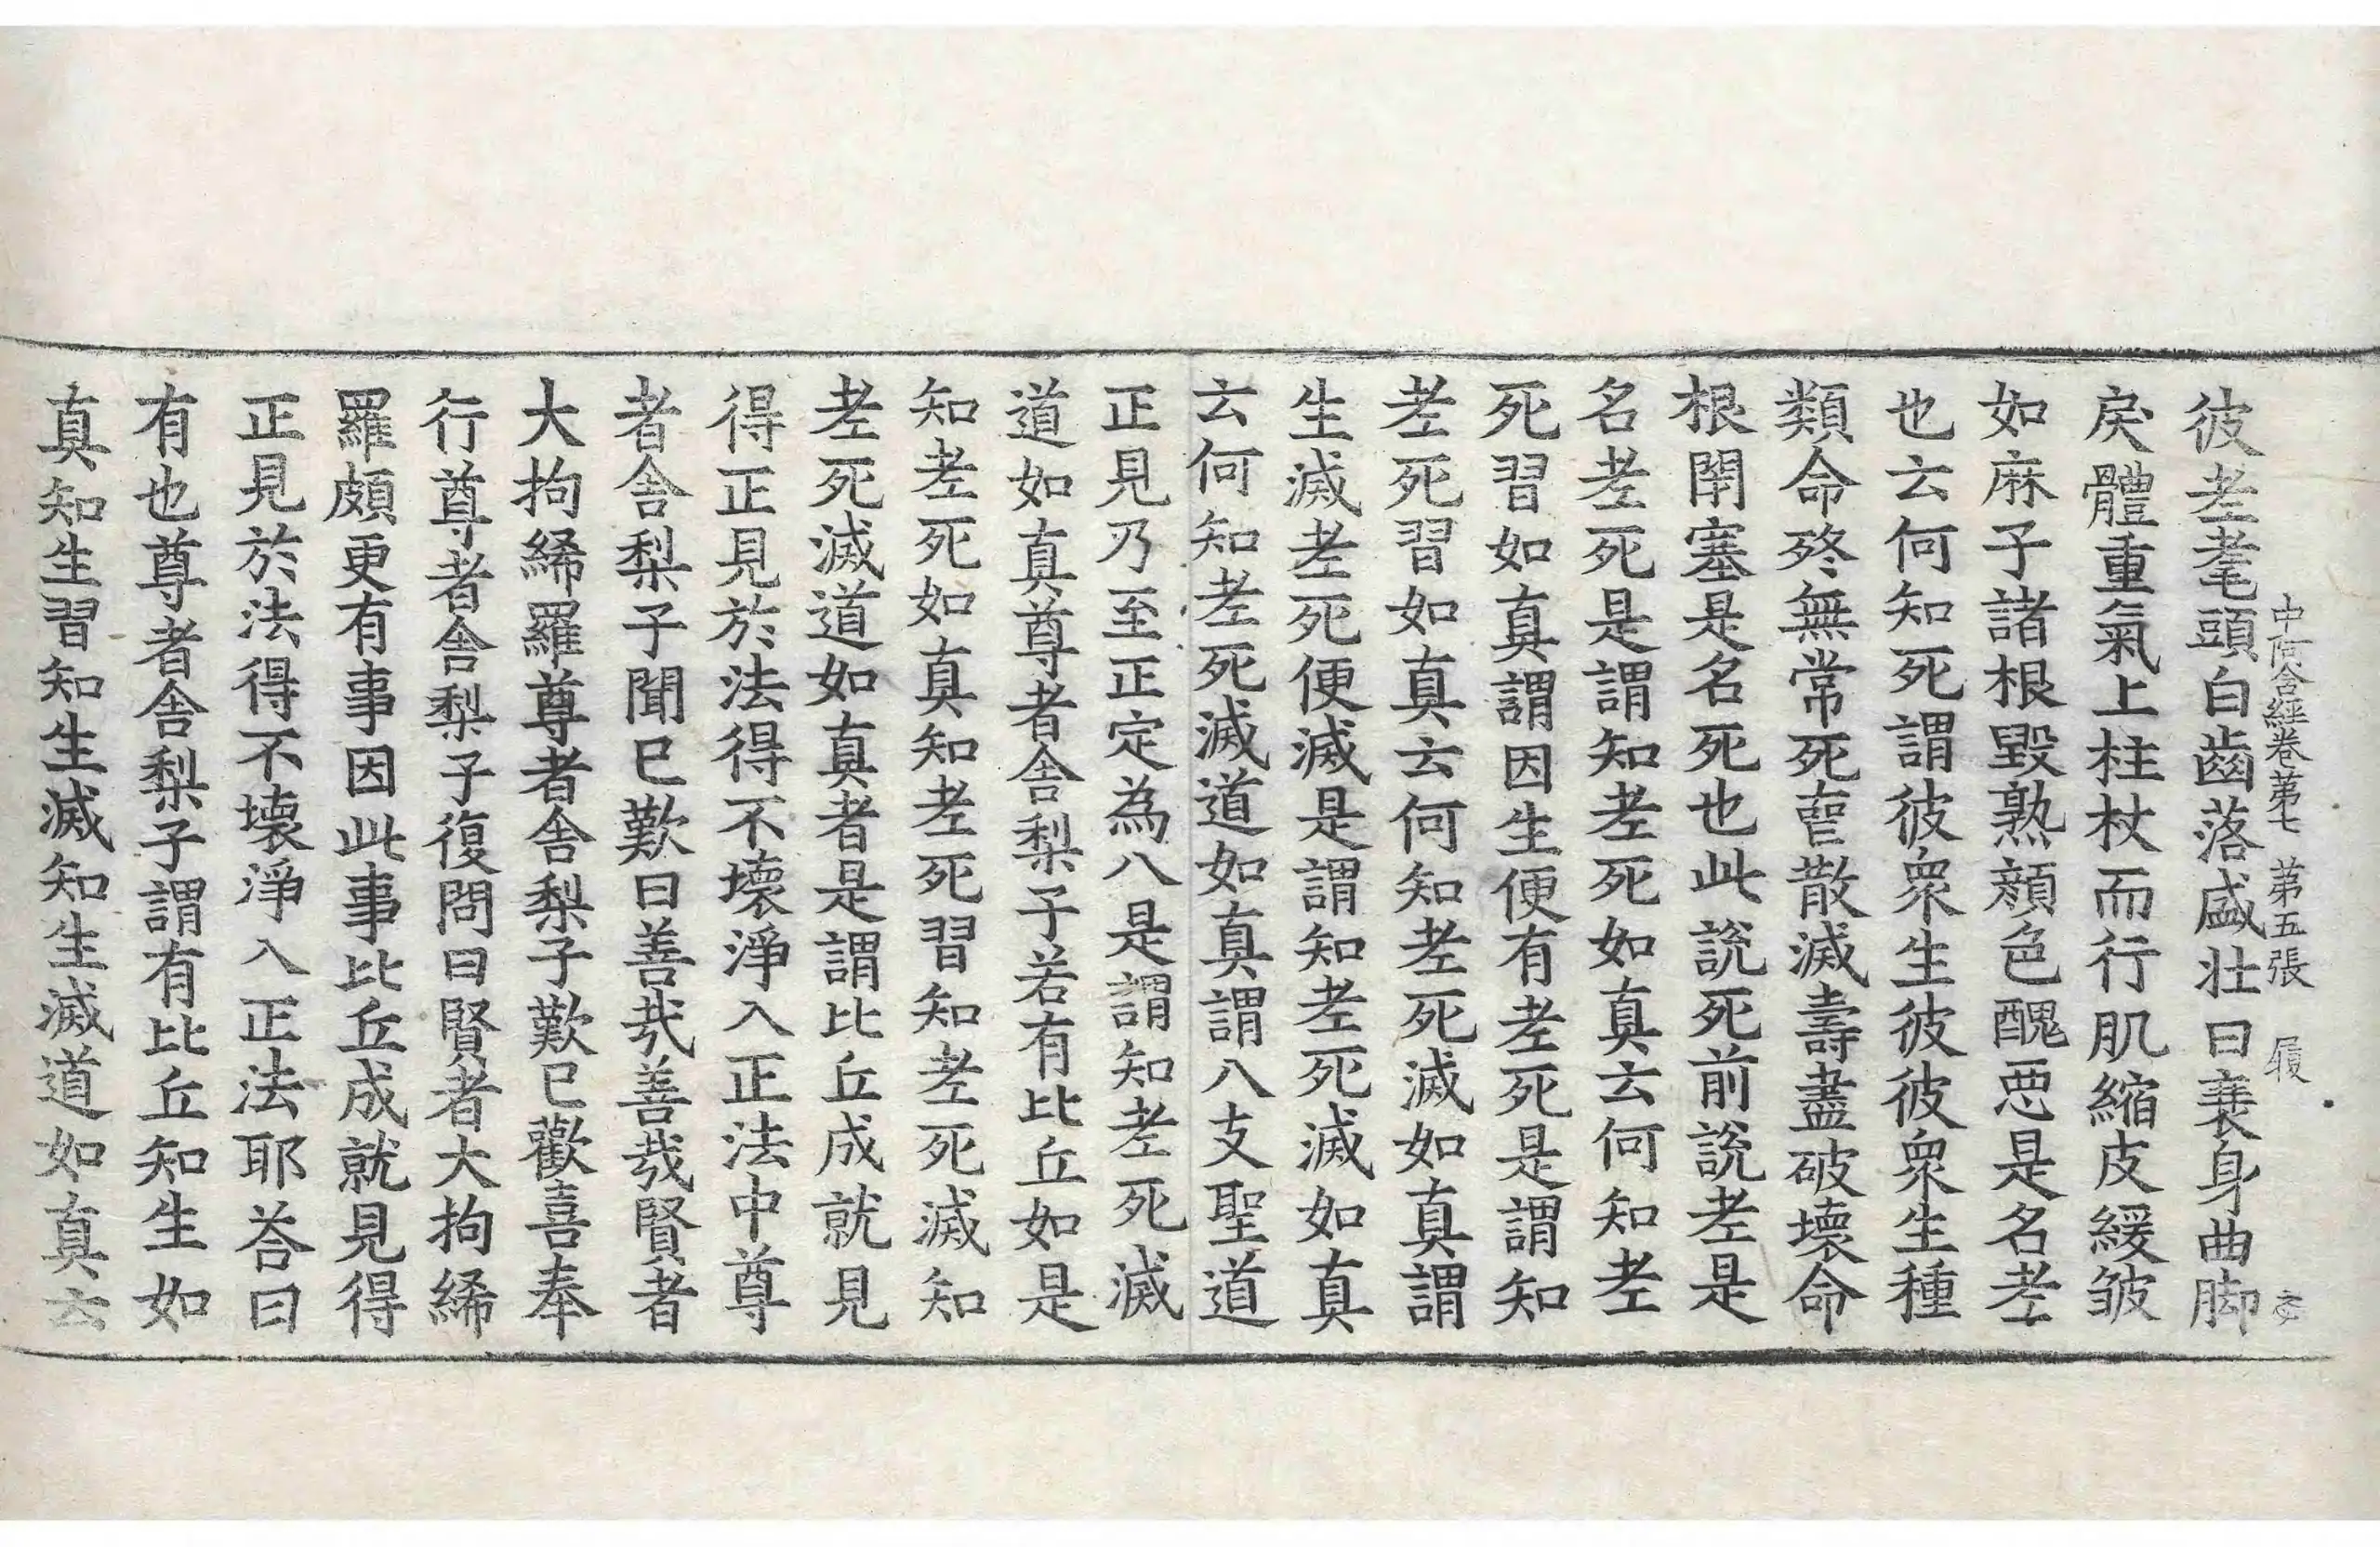 中阿含經卷第七 第五張 履
彼老耄頭白齒落盛壯日衰身曲脚
戾體重氣上柱杖而行肌縮皮緩皺
如麻子諸根毀熟顏色醜惡是名老
也云何知死謂彼衆生彼彼衆生種
類命終無常死喪散滅壽盡破壞命
根閉塞是名死也此說死前說老是
名老死是謂知老死如真云何知老
死習如真謂因生便有老死是謂知
老死習如真云何知老死滅如真謂
生滅老死便滅是謂知老死滅如真
云何知老死滅道如真謂八支聖道
正見乃至正定為八是謂知老死滅
道如真尊者舍梨子若有比丘如是
知老死如真知老死習知老死滅知
老死滅道如真者是謂比丘成就見
得正見於法得不壞淨入正法中尊
者舍梨子聞已歎曰善哉善哉賢者
大拘絺羅尊者舍梨子歎已歡喜奉
行尊者舍梨子復問曰賢者大拘絺
羅頗更有事因此事比丘成就見得
正見於法得不壞淨入正法耶荅曰
有也尊者舍梨子謂有比丘知生如
真知生習知生滅知生滅道如真云